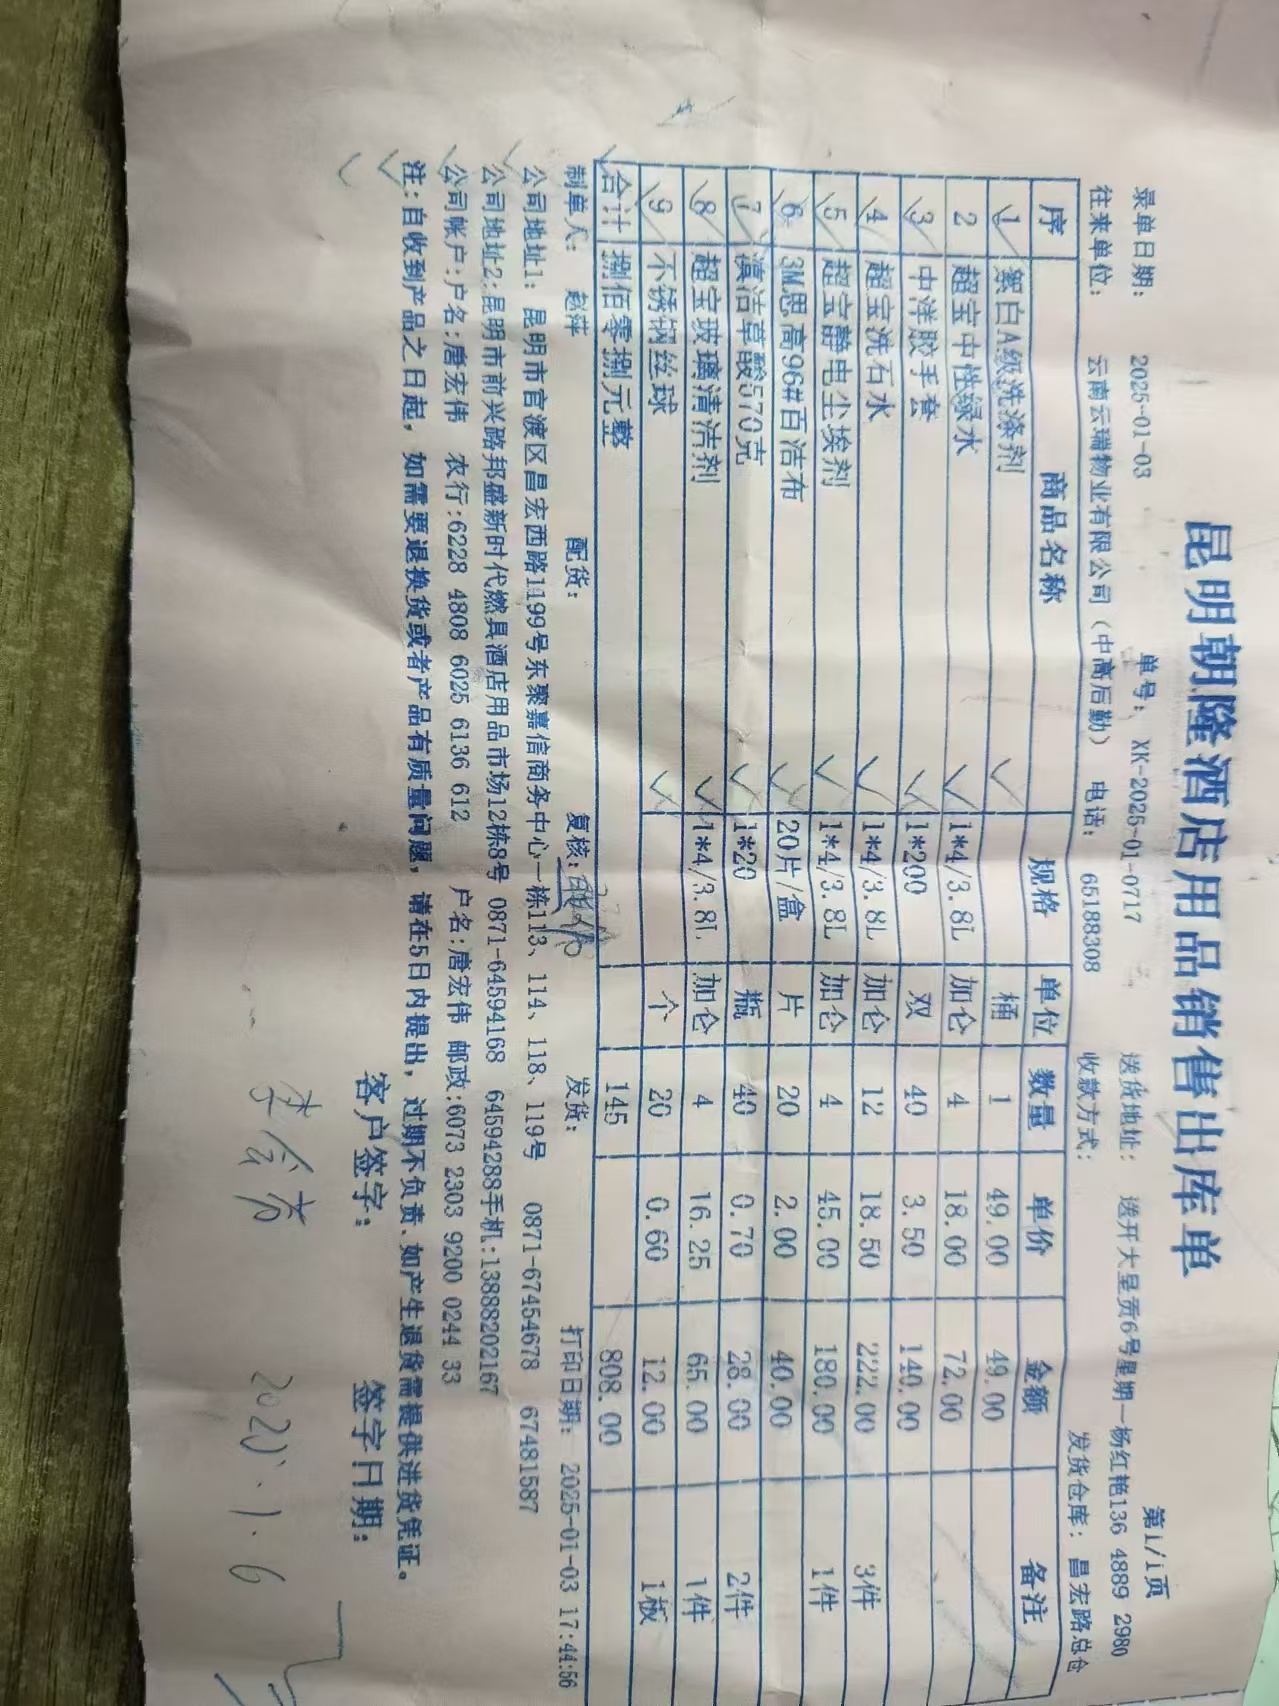 昆明朝隆酒店用品销售出库单
第1/1页
录单日期： 2025-01-03 单号： XK-2025-01-0717 送货地址： 送开大呈贡6号星期一杨红艳136 4889 2980
往来单位： 云南云瑞物业有限公司（中高后勤） 电话： 65188308 收款方式： 发货仓库： 昌宏路总仓
序 商品名称 规格 单位 数量 单价 金额 备注
1 絮白A级洗涤剂 桶 1 49.00 49.00
2 超宝中性绿水 1*4/3.8L 加仑 4 18.00 72.00
3 中洋胶手套 1*200 双 40 3.50 140.00
4 超宝洗石水 1*4/3.8L 加仑 12 18.50 222.00 3件
5 超宝静电尘埃剂 1*4/3.8L 加仑 4 45.00 180.00 1件
6 3M思高96#百洁布 20片/盒 片 20 2.00 40.00
7 滇洁草酸570克 1*20 瓶 40 0.70 28.00 2件
8 超宝玻璃清洁剂 1*4/3.8L 加仑 4 16.25 65.00 1件
9 不锈钢丝球 个 20 0.60 12.00 1板
合计 捌佰零捌元整 145 808.00
制单人： 赵萍 配货： 复核： 发货： 打印日期： 2025-01-03 17:44:56
公司地址1： 昆明市官渡区昌宏西路1199号东聚嘉信商务中心一栋113、114、118、119号 0871-67454678 67481587
公司地址2:昆明市前兴路邦盛新时代燃具酒店用品市场12栋8号 0871-64594168 64594288手机:13888202167
公司帐户:户名:唐宏伟 农行:6228 4808 6025 6136 612 户名:唐宏伟 邮政:6073 2303 9200 0244 33
注:自收到产品之日起，如需要退换货或者产品有质量问题，请在5日内提出，过期不负责、如产生退货需提供进货凭证。
客户签字： 签字日期：
2025.1.6